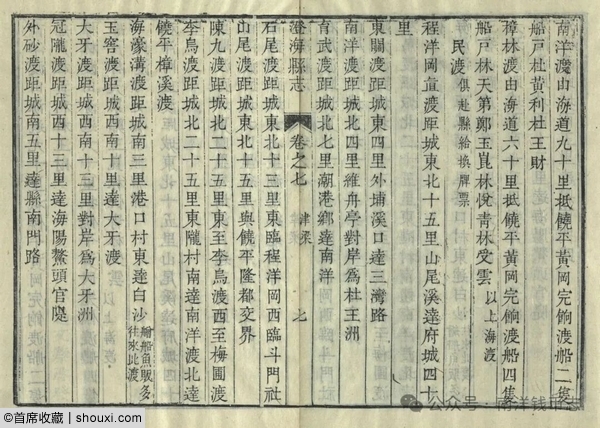 南洋渡由海道九十里抵饒平黃岡完餉渡船二隻
船戶杜黃利杜王財
樟林渡由海道六十里抵饒平黃岡完餉渡船四隻
船戶林天第鄭玉崑林悅青林受雲 以上海渡
民渡 俱赴縣給換牌票
程洋岡直渡距城東北十五里山尾溪達府城四十
里
東關渡距城東四里外埔溪口達三灣路
南洋渡距城北四里維舟亭對岸為杜王洲
育武渡距城北七里潮港鄉達南洋
澄海縣志 卷之七 津梁
石尾渡距城東北十三里東臨程洋岡西臨斗門社
山尾渡距城東北十五里與饒平隆都交界
陳九渡距城北二十五里東至李烏渡西至梅圃渡
李烏渡距城北二十五里東隴村南達南洋渡北達
饒平樟溪渡
海濠溝渡距城南三里港口村東達白沙 繪船魚販多往來此渡
玉窖渡距城西南十里達大牙渡
大牙渡距城西南十三里對岸為大牙洲
冠隴渡距城西十三里達海陽鰲頭官隄
外砂渡距城南五里達縣南門路
@首席收藏 | shouxi.com
公众号 · 南洋钱币志